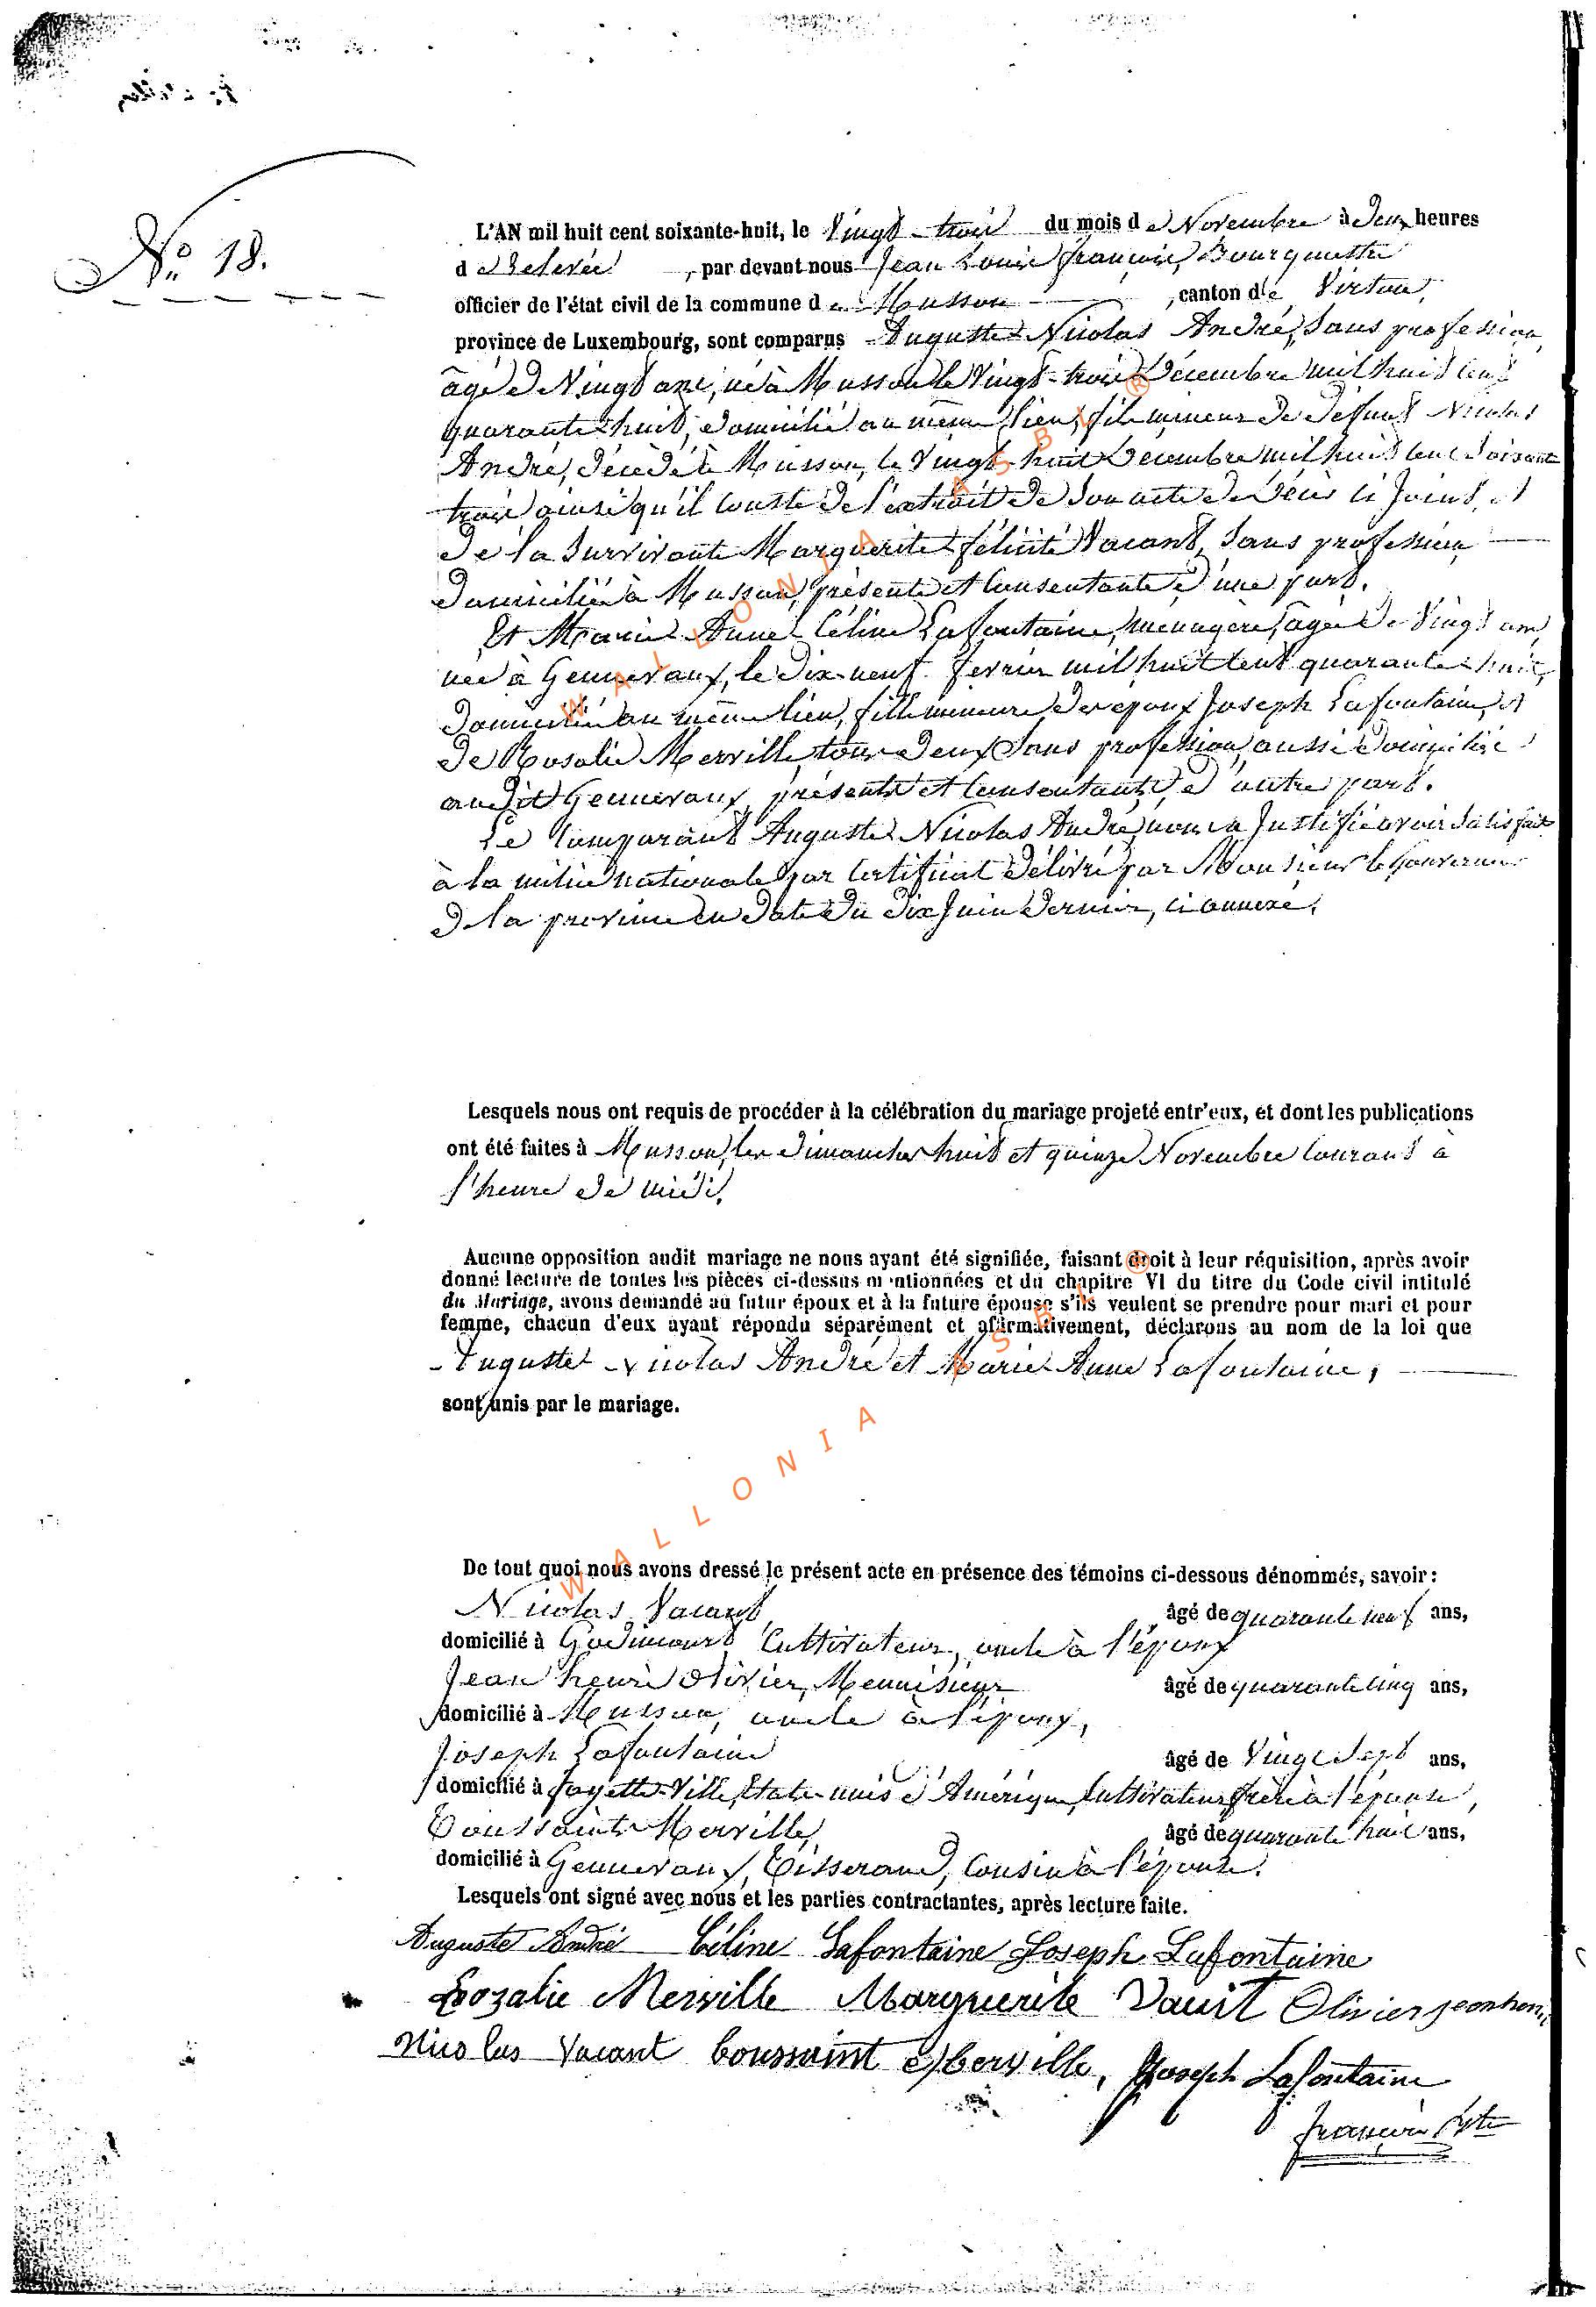 N° 18.
L'AN mil huit cent soixante-huit, le Vingt-trois du mois de Novembre à deux heures
de Relevée, par devant nous Jean Louis françois, Bourgmestre
officier de l'état civil de la commune de Musson, canton de Virton,
province de Luxembourg, sont comparus Auguste Nicolas André, sans profession,
âgé de Vingt ans, né à Musson le Vingt-trois Décembre mil huit cent
quarante huit, domicilié au même lieu, fils mineur de défunt Nicolas
André, décédé à Musson, le Vingt-huit Décembre mil huit cent soixante
trois ainsi qu'il conste de l'extrait de son acte de décès ci joint, et
de la survivante Marguerite félicité Vacant, sans profession
domiciliée à Musson, présente et consentante d'une part.
Et Marie-Anne Céline Lafontaine, ménagère, âgée de Vingt ans,
née à Gennevaux, le dix-neuf fevrier mil huit cent quarante huit,
domiciliée au même lieu, fille mineure des époux Joseph Lafontaine, et
de Rosalie Merville, tous deux sans profession, aussi domiciliés
audit Gennevaux, présents et consentants, d'autre part.
Le comparant Auguste Nicolas André, nous a justifié avoir satisfait
à la milice nationale par certificat délivré par Monsieur le Gouverneur
de la province en date du dix Juin dernier, ci annexé.
Lesquels nous ont requis de procéder à la célébration du mariage projeté entr'eux, et dont les publications
ont été faites à Musson, les dimanches huit et quinze Novembre courant à
l'heure de midi.
Aucune opposition audit mariage ne nous ayant été signifiée, faisant droit à leur réquisition, après avoir
donné lecture de toutes les pièces ci-dessus mentionnées et du chapitre VI du titre du Code civil intitulé
du Mariage, avons demandé au futur époux et à la future épouse s'ils veulent se prendre pour mari et pour
femme, chacun d'eux ayant répondu séparément et affirmativement, déclarons au nom de la loi que
Auguste Nicolas André et Marie-Anne Lafontaine,
sont unis par le mariage.
De tout quoi nous avons dressé le présent acte en présence des témoins ci-dessous dénommés, savoir:
Nicolas Vacant âgé de quarante neuf ans,
domicilié à Godincourt Cultivateur, oncle à l'époux
Jean henri Olivier, Menuisier âgé de quarante cinq ans,
domicilié à Musson, oncle à l'époux,
Joseph Lafontaine âgé de Vingt sept ans,
domicilié à fayette-Ville, Etats-unis d'Amérique, Cultivateur, frère à l'épouse,
Toussaint Merville, âgé de quarante huit ans,
domicilié à Gennevaux, Tisserand, Cousin à l'épouse.
Lesquels ont signé avec nous et les parties contractantes, après lecture faite.
Auguste André Céline Lafontaine Joseph Lafontaine
Rozalie Merville Marguerite Olivier jean henri
Nicolas Vacant toussaint Merville, Joseph Lafontaine
françois
WALLONIA ASBL ®
WALLONIA ASBL ®